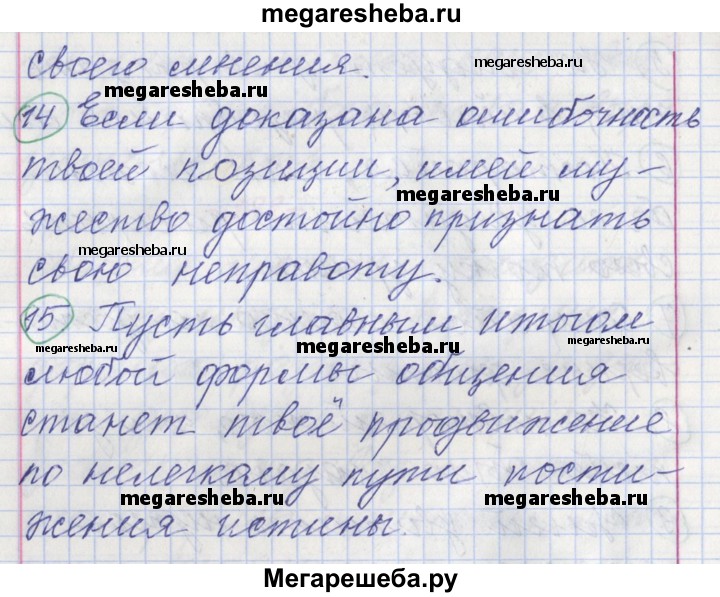 megaresheba.ru
своего мнения.
megaresheba.ru
megaresheba.ru
14 Если доказана ошибочность
твоей позиции, имей му-
megaresheba.ru
жество достойно признать
megaresheba.ru
свою неправоту.
15 Пусть главным итогом
megaresheba.ru
megaresheba.ru
megaresheba.ru
любой формы общения
станет твоё продвижение
по нелегкому пути пости-
megaresheba.ru
megaresheba.ru
жения истины.
Мегарешеба.ру